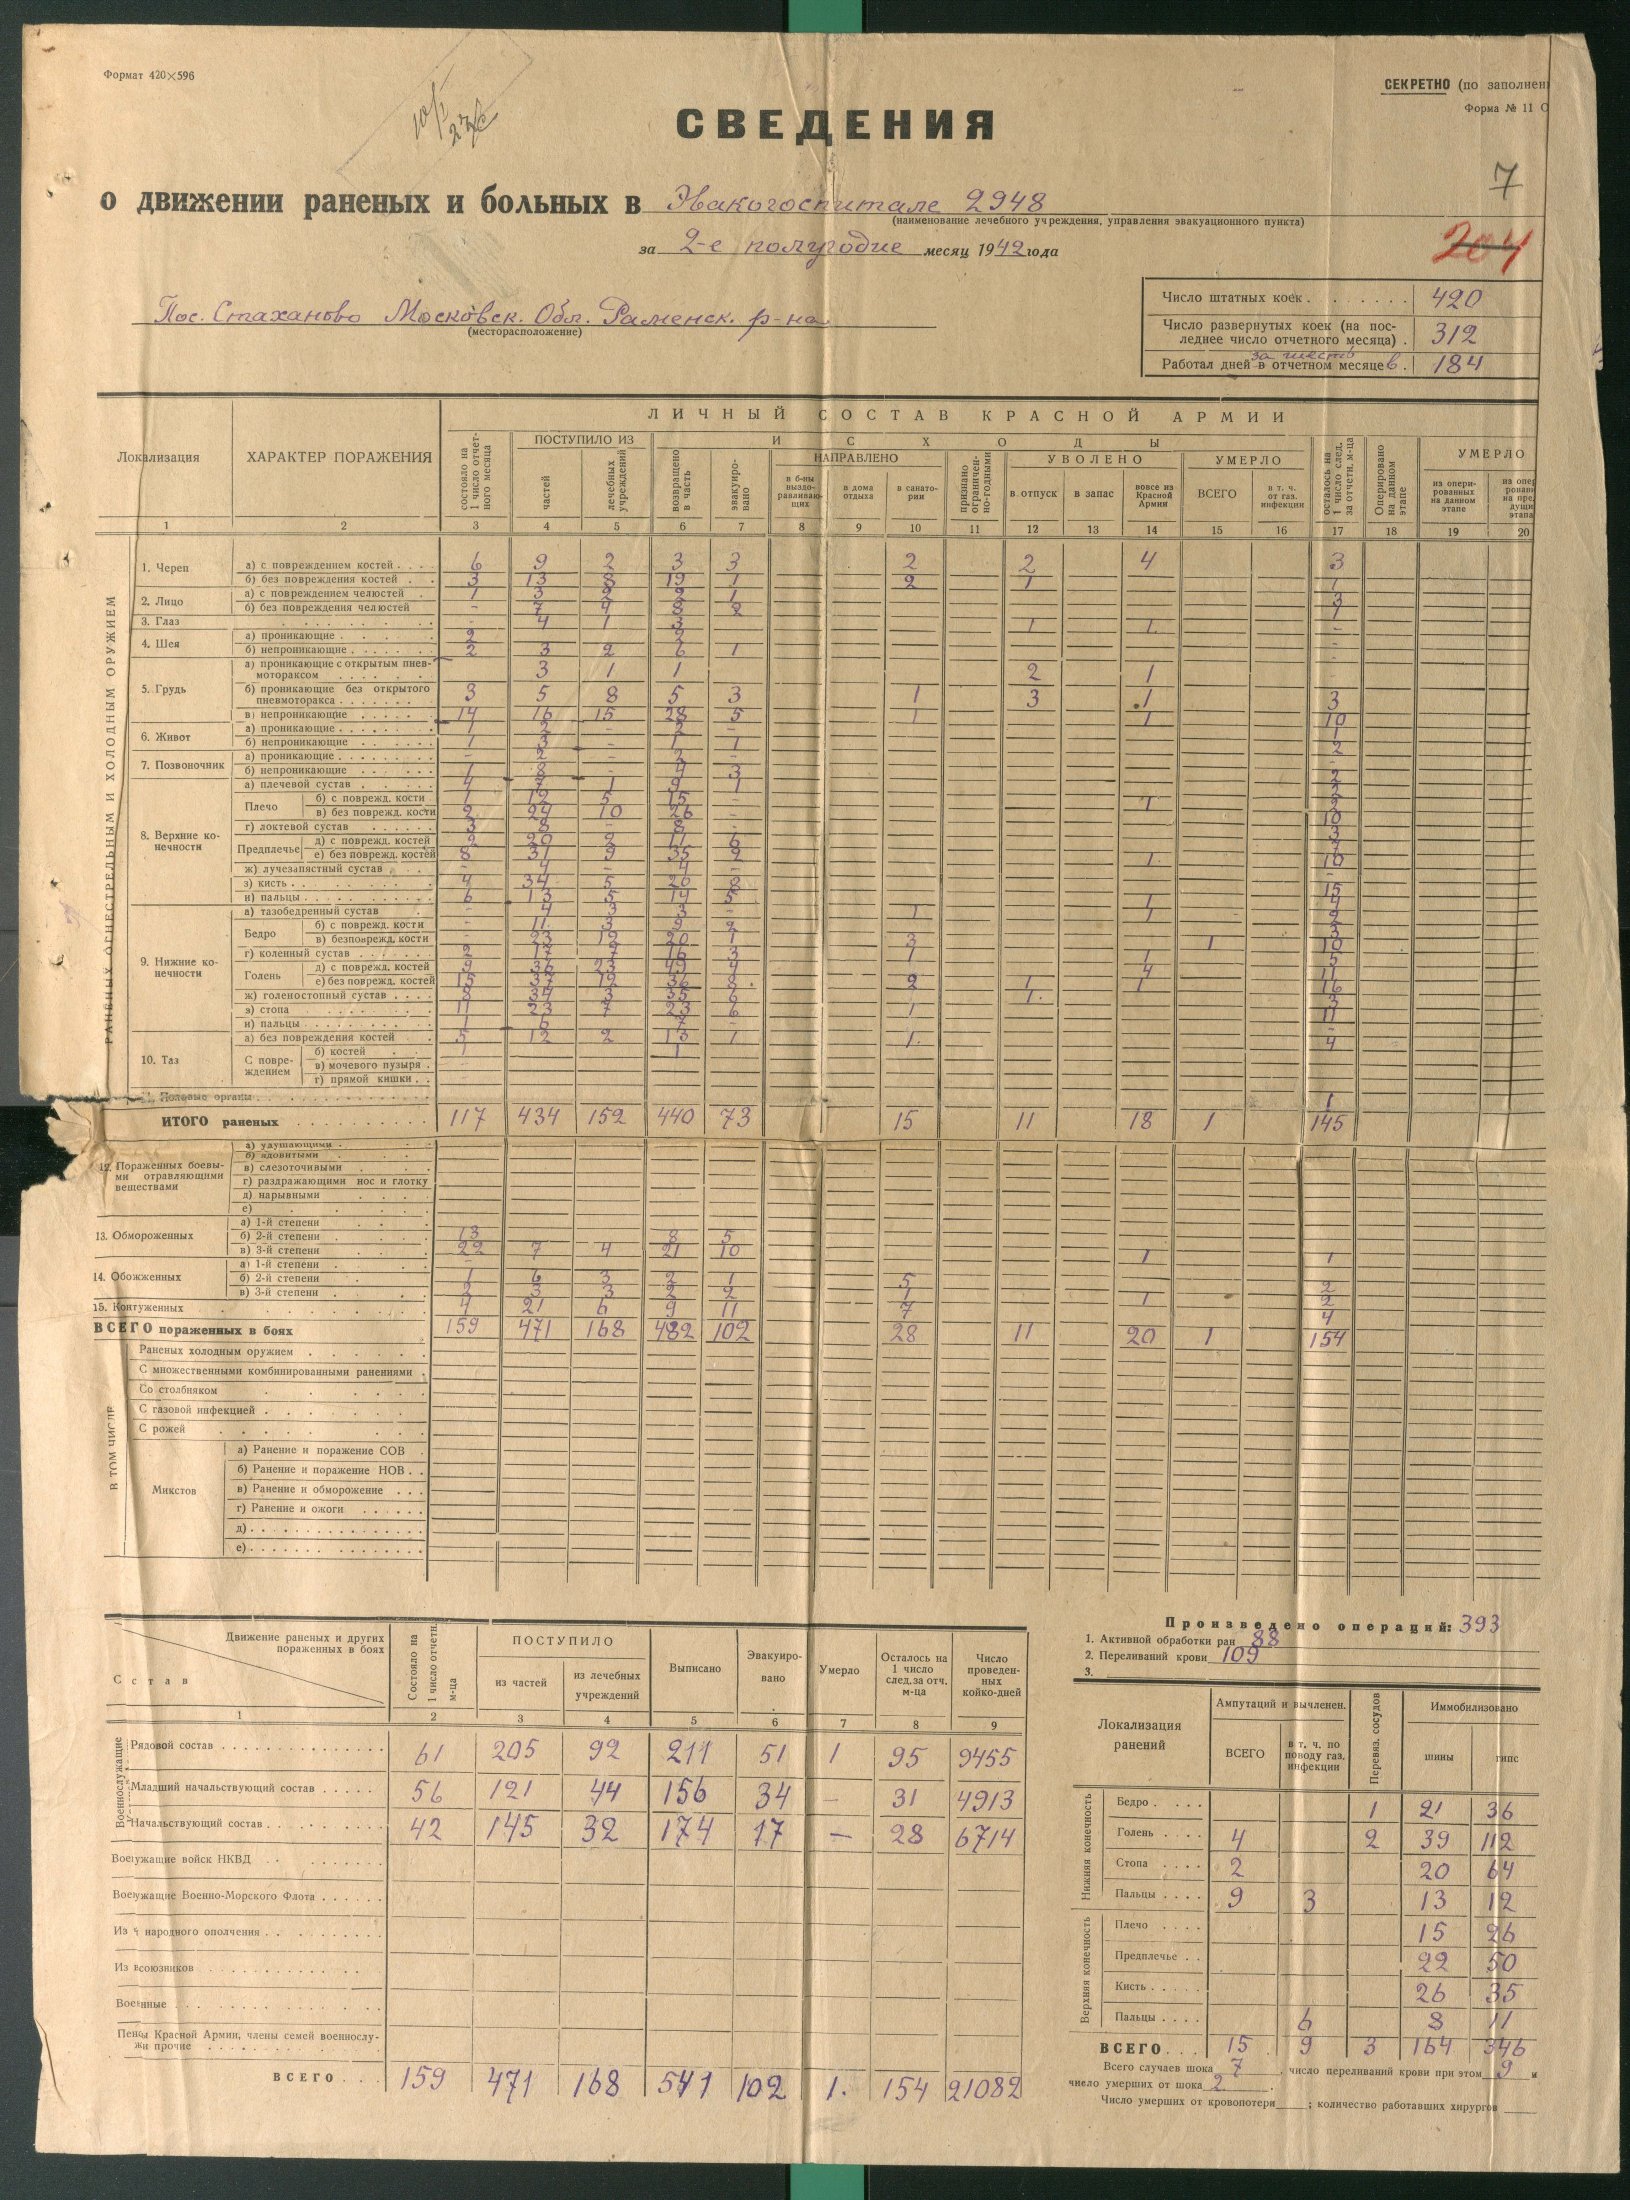 Формат 420×596
СЕКРЕТНО (по заполнен
Форма № 11 С
СВЕДЕНИЯ
7
о движении раненых и больных в Эвакогоспитале 2948
(наименование лечебного учреждения, управления эвакуационного пункта)
за 2-е полугодие месяц 1942 года
204
Пос. Стаханово Московск. Обл. Раменск. р-на
(месторасположение)
Число штатных коек . . . 420
Число развернутых коек (на последнее число отчетного месяца) . 312
за шесть
Работал дней в отчетном месяцев . 184
ЛИЧНЫЙ СОСТАВ КРАСНОЙ АРМИИ
Локализация
ХАРАКТЕР ПОРАЖЕНИЯ
состояло на 1 число отчетного месяца
ПОСТУПИЛО ИЗ
частей
лечебных учреждений
ИСХОДЫ
возвращено в часть
эвакуировано
НАПРАВЛЕНО
в б-ны выздоравливающих
в дома отдыха
в санатории
признано ограниченно-годными
УВОЛЕНО
в отпуск
в запас
вовсе из Красной Армии
УМЕРЛО
ВСЕГО
в т. ч. от газ. инфекции
осталось на 1 число след. за отчетн. м-ца
Оперировано на данном этапе
УМЕРЛО
из оперированных на данном этапе
1 2 3 4 5 6 7 8 9 10 11 12 13 14 15 16 17 18 19 20
РАНЕНЫХ ОГНЕСТРЕЛЬНЫМ И ХОЛОДНЫМ ОРУЖИЕМ
1. Череп
а) с повреждением костей . . . 6 9 2 3 3 2 2 4 3
б) без повреждения костей . . 3 13 8 19 1 2 1 1
2. Лицо
а) с повреждением челюстей . 1 3 2 2 1 3
б) без повреждения челюстей - 7 4 8 2 1
3. Глаз - 4 1 3 1 1
4. Шея
а) проникающие . 2 2
б) непроникающие . 2 3 2 6 1
5. Грудь
а) проникающие с открытым пневмотораксом 3 1 1 2 1
б) проникающие без открытого пневмоторакса . 3 5 8 5 3 1 3 1 3
в) непроникающие 14 16 15 28 5 1 1 10
6. Живот
а) проникающие . 1 2 - 2 - 1
б) непроникающие 1 3 - 1 1 2
7. Позвоночник
а) проникающие . 2 - 2 -
б) непроникающие 8 - 4 3 2
8. Верхние конечности
а) плечевой сустав 4 7 1 9 1 2
Плечо
б) с поврежд. кости 1 12 5 15 - 1 2
в) без поврежд. кости 2 24 10 26 - 10
г) локтевой сустав 3 8 8 - 3
Предплечье
д) с поврежд. костей 2 20 2 11 6 7
е) без поврежд. костей 8 31 9 35 2 1 10
ж) лучезапястный сустав - 4 - 4 - -
з) кисть . 4 34 5 20 8 15
и) пальцы . 6 13 5 14 5 1 4
9. Нижние конечности
а) тазобедренный сустав - 4 3 3 - 1 1 2
Бедро
б) с поврежд. кости - 11 3 9 2 3
в) без поврежд. кости - 23 12 20 1 3 1 10
г) коленный сустав 2 17 7 16 3 1 1 5
Голень
д) с поврежд. костей 9 36 23 49 4 4 11
е) без поврежд. костей 15 37 12 36 8 2 1 1 16
ж) голеностопный сустав 8 34 3 35 6 1 3
з) стопа 11 23 7 23 6 1 11
и) пальцы 1 6 7 - -
10. Таз
а) без повреждения костей 5 12 2 13 1 1 4
С повреждением
б) костей 1 1
в) мочевого пузыря .
г) прямой кишки .
11. Половые органы 1
ИТОГО раненых 117 434 152 440 73 15 11 18 1 145
12. Пораженных боевыми отравляющими веществами
а) удушающими .
б) ядовитыми
в) слезоточивыми
г) раздражающими нос и глотку
д) нарывными
е)
13. Обмороженных
а) 1-й степени
б) 2-й степени 13 8 5
в) 3-й степени 22 7 4 21 10 1 1
14. Обожженных
а) 1-й степени -
б) 2-й степени 1 6 3 2 1 5 2
в) 3-й степени 2 3 3 2 2 1 1 2
15. Контуженных 4 21 6 9 11 7 4
ВСЕГО пораженных в боях 159 471 168 482 102 28 11 20 1 154
В ТОМ ЧИСЛЕ
Раненых холодным оружием
С множественными комбинированными ранениями
Со столбняком
С газовой инфекцией
С рожей
Микстов
а) Ранение и поражение СОВ
б) Ранение и поражение НОВ
в) Ранение и обморожение
г) Ранение и ожоги
д)
е)
Движение раненых и других пораженных в боях
Состав
Состояло на 1 число отчетн. м-ца
ПОСТУПИЛО
из частей
из лечебных учреждений
Выписано
Эвакуировано
Умерло
Осталось на 1 число след. за отч. м-ца
Число проведенных койко-дней
1 2 3 4 5 6 7 8 9
Военнослужащие
Рядовой состав 61 205 92 211 51 1 95 9455
Младший начальствующий состав 56 121 44 156 34 - 31 4913
Начальствующий состав 42 145 32 174 17 — 28 6714
ужащие войск НКВД
ужащие Военно-Морского Флота
народного ополчения
Красной Армии, члены семей военнослу-
прочие
ВСЕГО 159 471 168 541 102 1. 154 21082
Произведено операций: 393
1. Активной обработки ран 88
2. Переливаний крови 109
3.
Локализация ранений
Ампутаций и вычленен.
ВСЕГО
в т. ч. по поводу газ. инфекции
Перевяз. сосудов
Иммобилизовано
шины
гипс
Нижняя конечность
Бедро 1 21 36
Голень 4 2 39 112
Стопа 2 20 64
Пальцы 9 3 13 12
Верхняя конечность
Плечо 15 26
Предплечье 22 50
Кисть 26 35
Пальцы 6 8 11
ВСЕГО 15 9 3 164 346
Всего случаев шока 7, число переливаний крови при этом 9 и
число умерших от шока 2.
Число умерших от кровопотери ; количество работавших хирургов